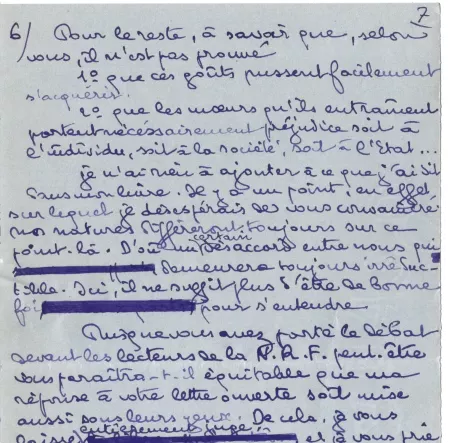 7
6/ Pour le reste, à savoir que, selon
vous, il n'est pas prouvé
1º que ces goûts pussent facilement
s'acquérir.
2º que les mœurs qu'ils entraînent
portent nécessairement préjudice soit à
l'individu, soit à la société, soit à l'État...
je n'ai rien à ajouter à ce que j'ai dit
dans mon livre. Il y a un point, en effet
sur lequel je désespérais de vous convaincre
nos natures différeront toujours sur ce
point-là. D'où un certain désaccord entre nous qui
demeurera toujours irréduc-
tible. Ici, il ne suffit plus d'être de bonne
foi pour s'entendre.
Puisque vous avez porté le débat
devant les lecteurs de la N.R.F. peut-être
vous paraîtra-t-il équitable que ma
réponse à votre lettre ouverte soit mise
aussi sous leurs yeux. De cela, je vous
laisse entièrement juge et je vous prie